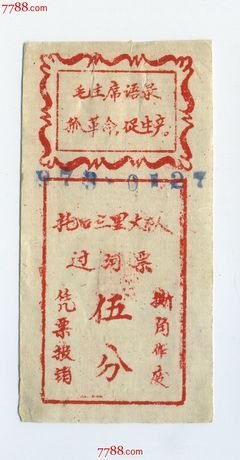 7788.com
毛主席语录
抓革命,促生产。
0127
托口三里大队
过河票
伍分
撕角作废
凭票报销
7788.com